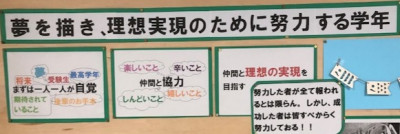 夢を描き、理想実現のために努力する学年
将来 夢 受験生 最高学年
まずは一人一人が自覚
期待されて
いること 後輩のお手本
楽しいこと 辛いこと
仲間と協力
しんどいこと 嬉しいこと
仲間と理想の実現を
目指す
努力した者が全て報われ
るとは限らん。しかし、成
功した者は皆すべからく
努力しておる！！